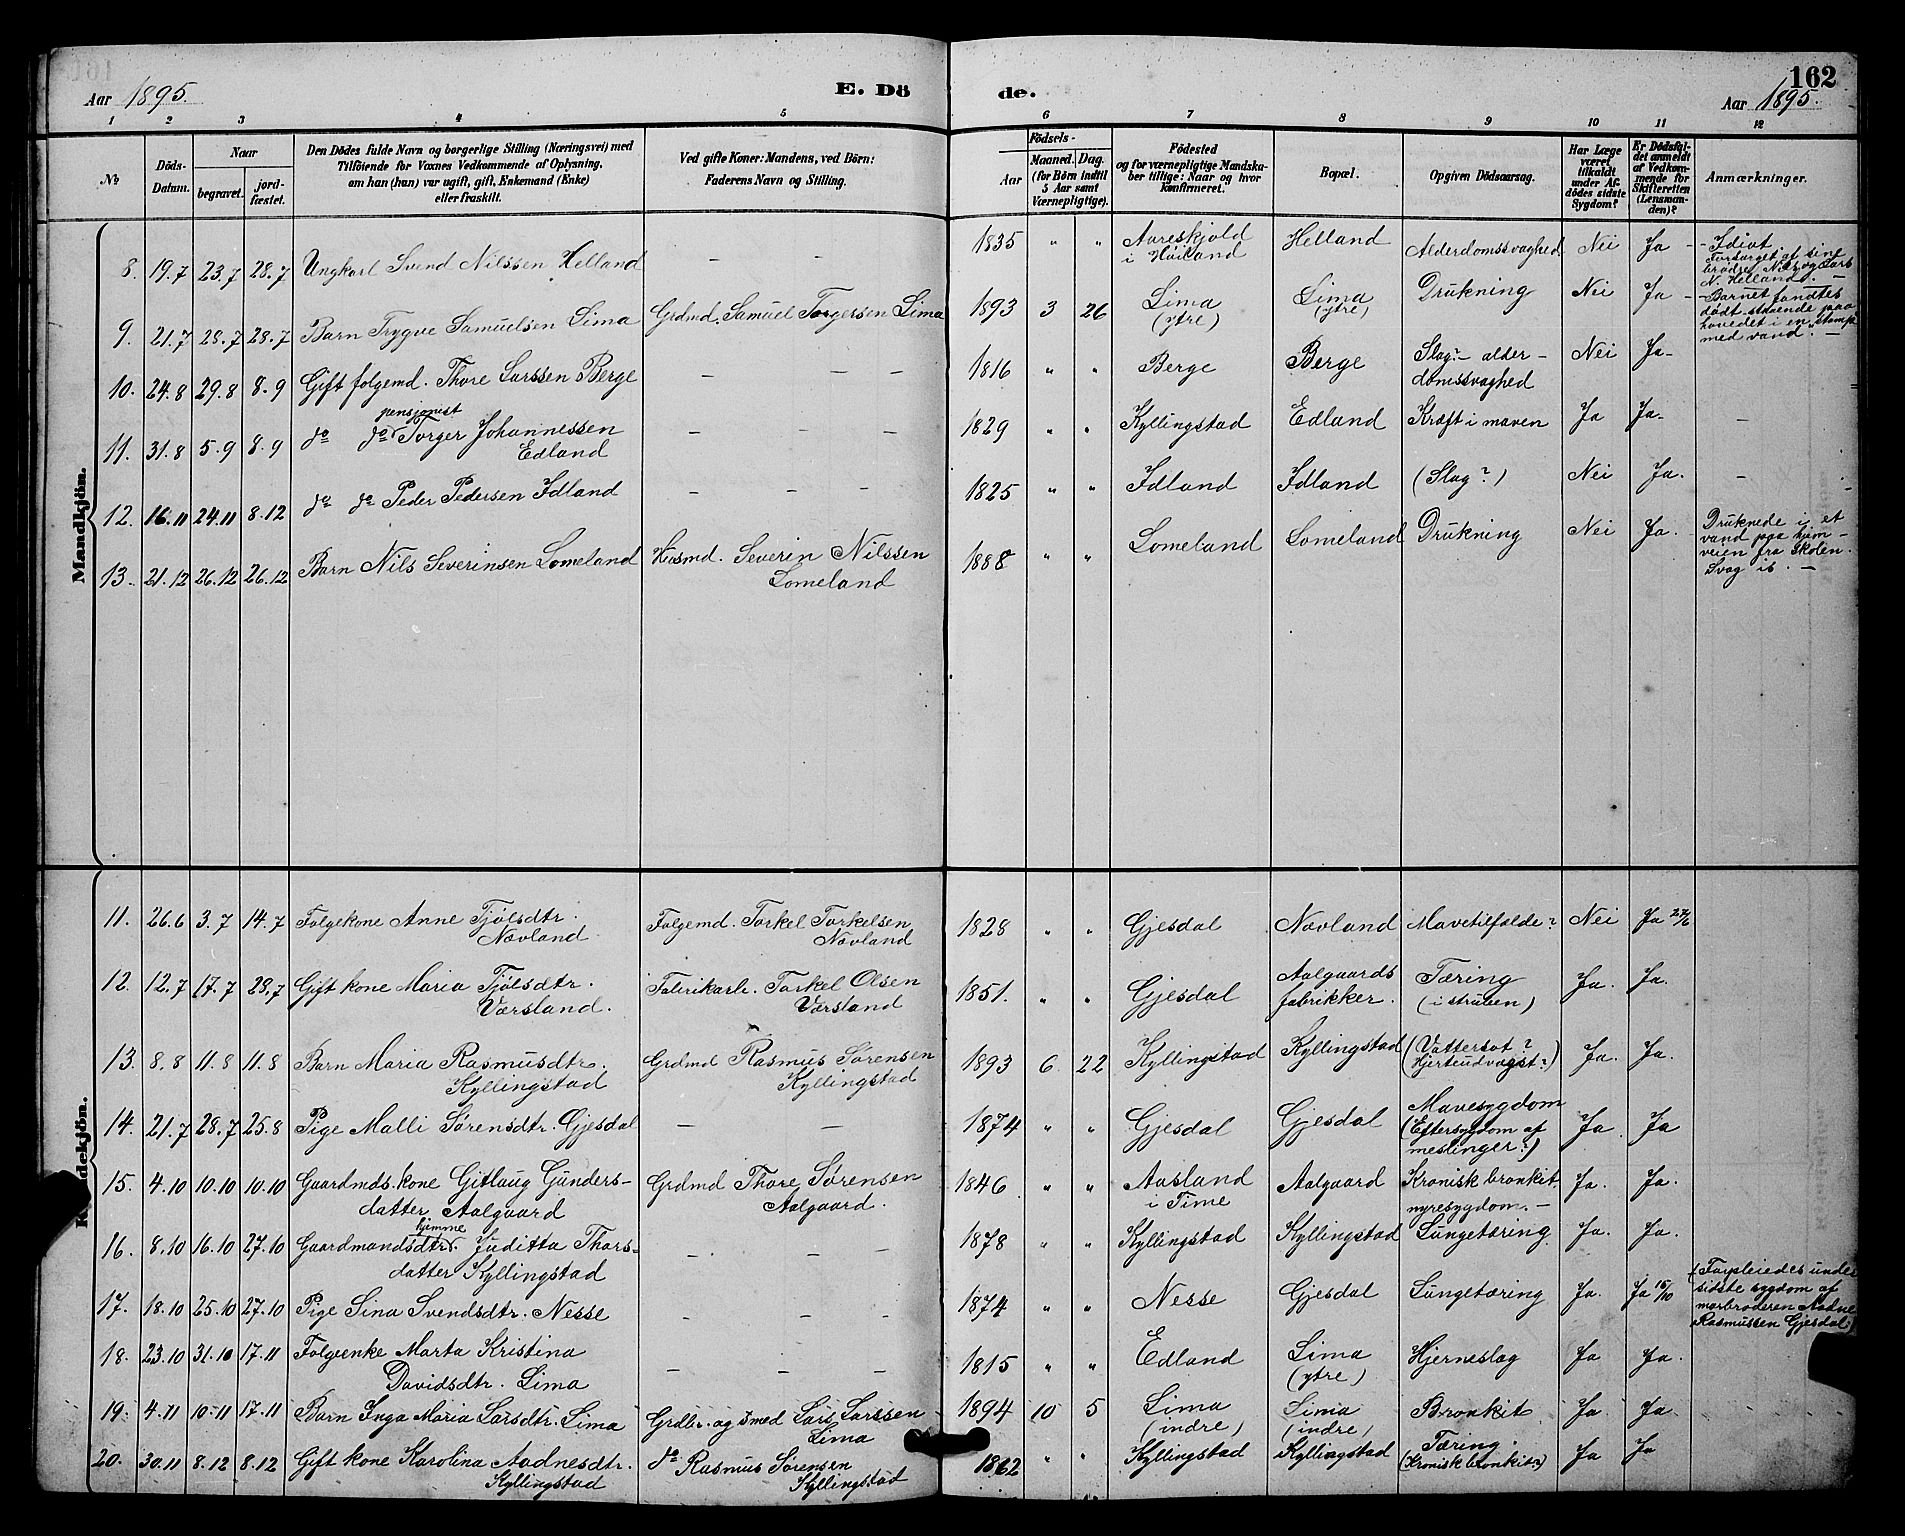 162
Aar 1895.
E. Dö de.
Aar 1895.
1 2 3 4 5 6 7 8 9 10 11 12
№
Döds-
Datum.
Naar
begravet.
jord-
fæstet.
Den Dödes fulde Navn og borgerlige Stilling (Næringsvei) med
Tilföiende for Voxnes Vedkommende af Oplysning,
om han (hun) var ugift, gift, Enkemand (Enke)
eller fraskilt.
Ved gifte Koner: Mandens, ved Börn:
Faderens Navn og Stilling.
Födsels-
Aar
Maaned. Dag.
(for Börn indtil
5 Aar samt
Værnepligtige).
Födested
og for værnepligtige Mandska-
ber tillige: Naar og hvor
konfirmeret.
Bopæl.
Opgiven Dödsaarsag.
Har Læge
været
tilkaldt
under Af-
dödes sidste
Sygdom?
Er Dödsfal-
det anmeldt
af Vedkom-
mende for
Skifteretten
(Lensman-
den)?
Anmærkninger.
Mandkjön.
8. 19.7 23.7 28.7 Ungkarl Svend Nilssen Helland — — 1835 " " Aareskjold
i Höiland Helland Alderdomssvaghed. Nei Ja - - Idiot
Forsørget af sine
brødre Nils og Lars
N. Helland. —
9. 21.7 28.7 28.7 Barn Trygve Samuelsen Lima Grdmd. Samuel Torgersen Lima 1893 3 26 Lima
(ytre) Lima
(ytre) Drukning Nei Ja - - Barnet fandtes
dødt staaende paa
hovedet i en stamp
med vand. —
10. 24.8 29.8 8.9 Gift folgemd. Thore Larssen Berge — — — 1816 " " Berge Berge Slag?- alder-
domssvaghed Nei Ja-
11. 31.8 5.9 8.9 do do pensjonist Torger Johannessen
Edland — — — 1829 " " Kyllingstad Edland Kræft i maven Ja Ja- —
12. 16.11 24.11 8.12 do do Peder Pedersen Idland — — — 1825 " " Idland Idland (Slag?) Nei Ja. —
13. 21.12 26.12 26.12 Barn Nils Severinsen Lomeland Husmd. Severin Nilssen
Lomeland 1888 " " Lomeland Lomeland Drukning Nei Ja. Druknede i et
vand paa hjem-
veien fra skolen.
Svag is. —
Kvindekjön.
11. 26.6 3.7 14.7 Folgekone Anne Tjølsdtr.
Nævland Folgemd. Torkel Torkelsen
Nævland 1828 " " Gjesdal Nævland Mavetilfælde? Nei Ja 27/6
12. 12.7 17.7 28.7 Gift kone Maria Tjølsdtr.
Værsland. Fabrikarb. Torkel Olsen
Værsland 1851. " " Gjesdal Aalgaards
fabrikker. Tæring
(i struben) Ja. Ja.
13. 8.8 11.8 11.8 Barn Maria Rasmusdtr.
Kyllingstad Grdmd Rasmus Sørensen
Kyllingstad 1893 6 22 Kyllingstad Kyllingstad (Vattersot?
Hjerteudvogst?) Ja. Ja.
14. 21.7 28.7 25.8 Pige Malli Sørensdtr. Gjesdal — — 1874 " " Gjesdal Gjesdal Mavesygdom
(Eftersygdom af
meslinger?) Ja. Ja
15. 4.10 10.10 10.10 Gaardmds. kone Gitlaug Gunders-
datter Aalgaard Grdmd Thore Sørensen
Aalgaard. 1846 " " Aasland
i Time Aalgaard Kronisk bronkit
nyresygdom. — Ja. Ja.
16. 8.10 16.10 27.10 Gaardmandsdtr. hjemme Juditta Thors-
datter Kyllingstad — — — 1878 " " Kyllingstad Kyllingstad Lungetæring. Ja. Ja.
17. 18.10 25.10 27.10 Pige Sina Svendsdtr. Nesse — — — 1874 " " Nesse Gjesdal Lungetæring Ja. Ja 15/10 (Forpleiedes under
sidste sygdom af
morbroderen Aadne
Rasmussen Gjesdal)
18. 23.10 31.10 17.11 Folgeenke Marta Kristina
Davidsdtr. Lima — — — 1815 " " Edland Lima
(ytre) Hjerneslag Ja Ja.
19. 4.11 10.11 17.11 Barn Inga Maria Larsdtr. Lima Grdbr. og smed Lars Larssen
Lima 1894 10 5 Lima
(indre) Lima
(indre) Bronkit Ja. Ja.
20. 30.11 8.12 8.12 Gift kone Karolina Aadnesdtr.
Kyllingstad do Rasmus Sørensen
Kyllingstad 1862 " " Kyllingstad Kyllingstad Tæring.
(Kronisk bronkit?) Ja Ja